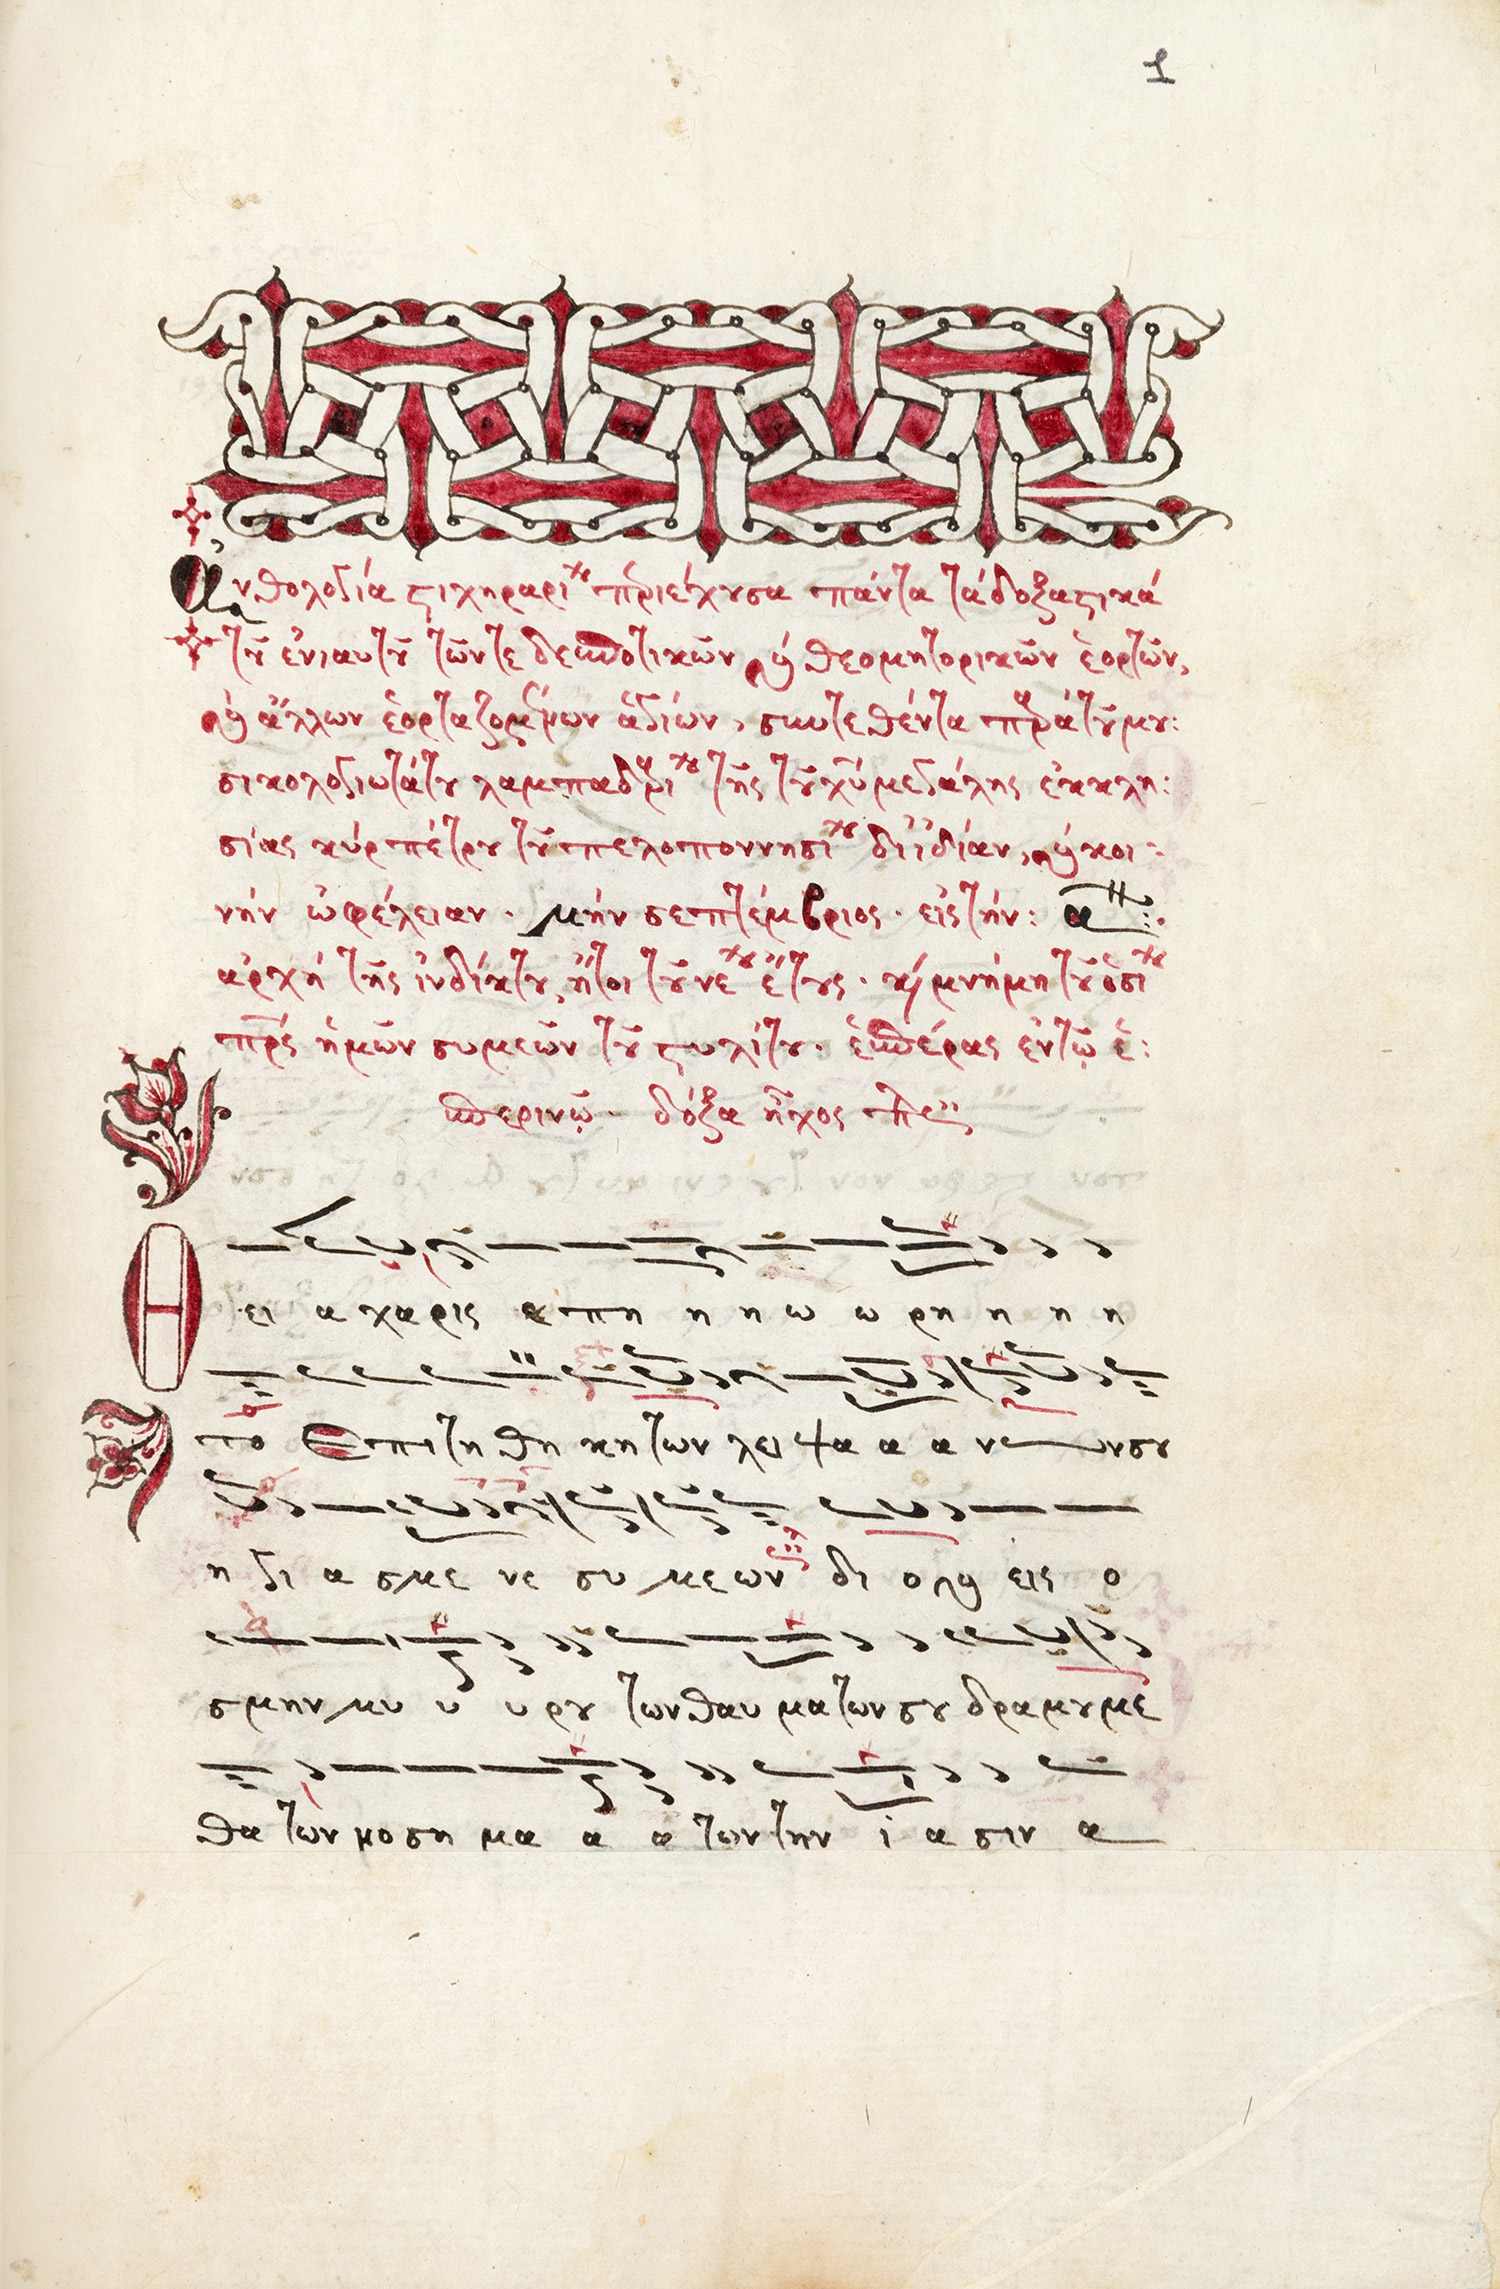 1
Ἀνθολογία στιχηραρίου περιέχουσα πάντα τά δοξαστικά
τοῦ ἐνιαυτοῦ τῶν τε δεσποτικῶν καί θεομητορικῶν ἑορτῶν,
καί ἄλλων ἑορταζομένων ἁγίων, συντεθέντα παρά τοῦ μου:
σικολογιωτάτου λαμπαδαρίου τῆς τοῦ χῦ μεγάλης ἐκκλη:
σίας κύρ πέτρου τοῦ πελοποννησίου δι' ἰδίαν, καί κοι:
νήν ὠφέλειαν. μήν σεπτέμβριος. εἰς τήν: α
ἀρχή τῆς ἰνδίκτου, ἤτοι τοῦ νέου ἔτους. καί μνήμη τοῦ ὁσίου
πρς ἡμῶν συμεῶν τοῦ στυλίτου. ἑσπέρας ἐν τῶ ἑ:
σπερινῶ. δόξα ἦχος πλ
Θει α χαρις α πη η η ω ω ρη η η η
το Επι τη θη κη των λει ψα α α νων σου
η γι α σμε νε συ με ων δι ο και εις ο
σμην μυ υ υ ρου των θαυ μα των σου δραμουμε
θα των νο ση μα α α των την ι α σιν α